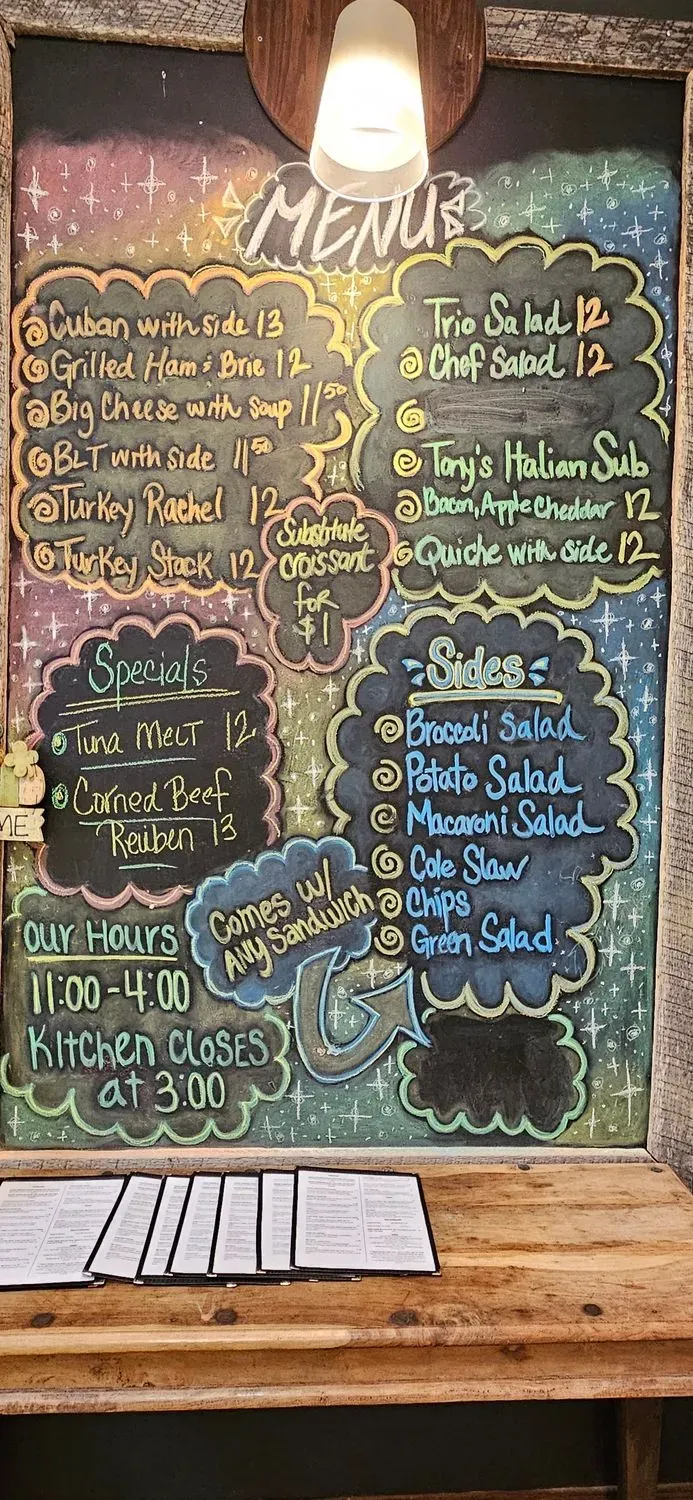 MENU
Cuban with side 13
Grilled Ham & Brie 12
Big Cheese with soup 11/50
BLT with side 11/50
Turkey Rachel 12
Turkey Stack 12
Substitute
croissant
for
$1
Trio Salad 12
Chef Salad 12
Tony's Italian Sub
Bacon, Apple Cheddar 12
Quiche with side 12
Specials
Tuna Melt 12
Corned Beef
Reuben 13
Sides
Broccoli Salad
Potato Salad
Macaroni Salad
Cole Slaw
Chips
Green Salad
Comes w/
Any Sandwich
Our Hours
11:00-4:00
Kitchen Closes
at 3:00
ME